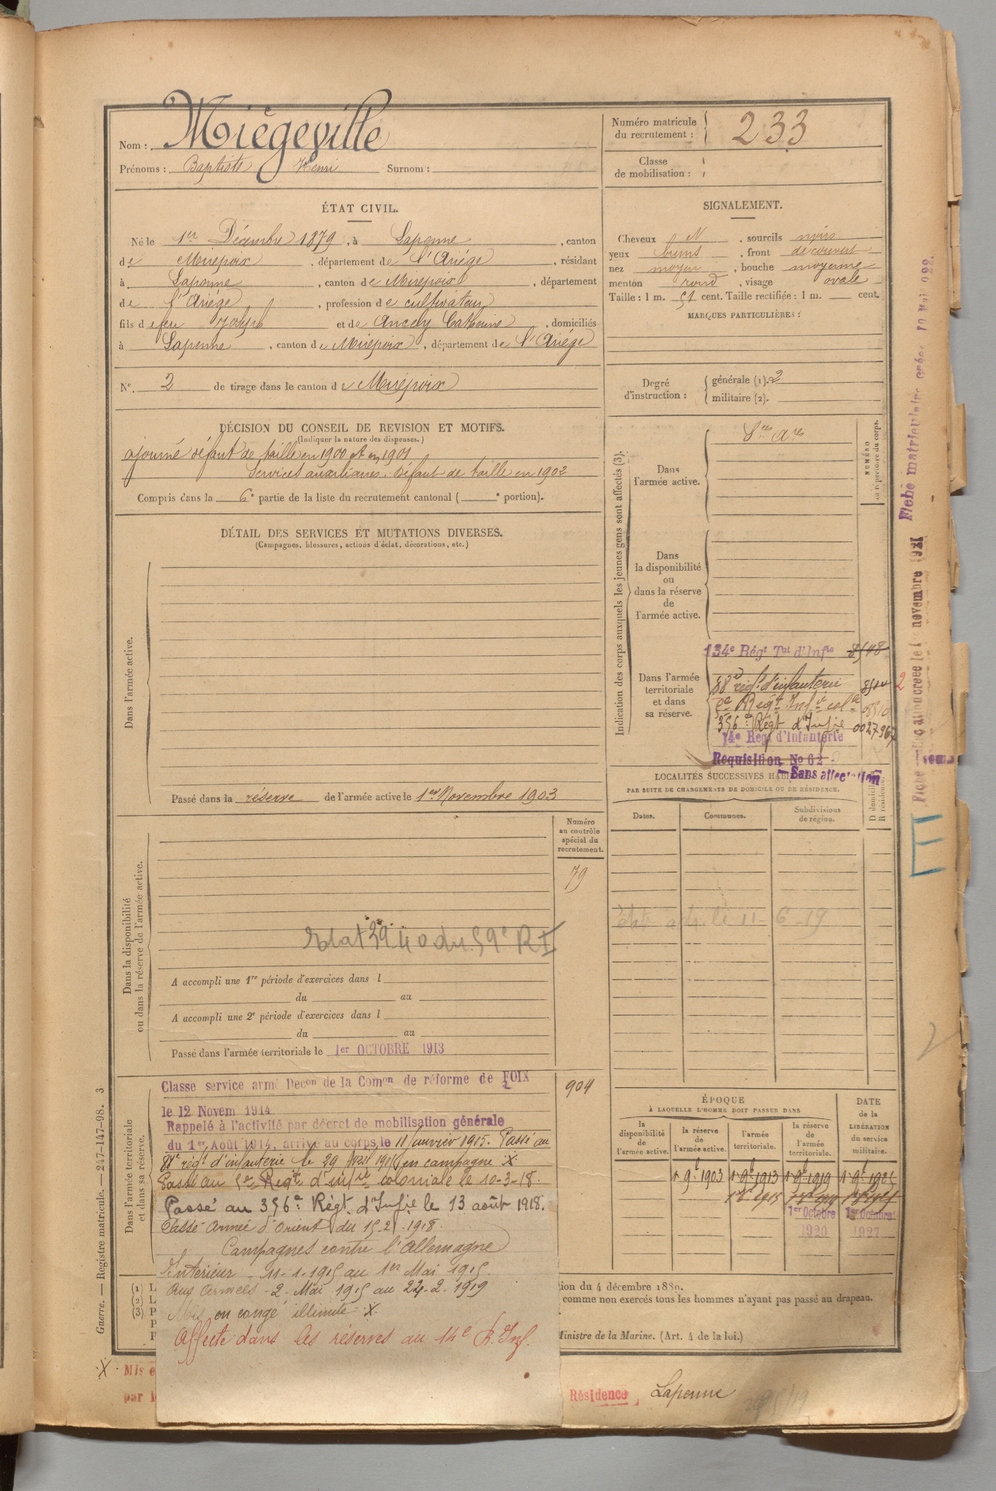 Nom : Miégeville
Prénoms : Baptiste Henri Surnom :
Numéro matricule du recrutement : 233
Classe de mobilisation :
ÉTAT CIVIL.
Né le 1er Décembre 1879, à Lapenne, canton
de Mirepoix, département de l'Ariége, résidant
à Lapenne, canton de Mirepoix, département
de l'Ariége, profession de cultivateur
fils de feu Joseph et de Catherine, domiciliés
à Lapenne, canton de Mirepoix, département de l'Ariége
N° 2 de tirage dans le canton de Mirepoix
SIGNALEMENT.
Cheveux N, sourcils noirs
yeux bruns, front découvert
nez moyen, bouche moyenne
menton rond, visage ovale
Taille : 1 m. 51 cent. Taille rectifiée : 1 m. cent.
MARQUES PARTICULIÈRES :
Degré d'instruction : générale (1). 2
militaire (2).
DÉCISION DU CONSEIL DE REVISION ET MOTIFS.
(Indiquer la nature des dispenses.)
ajourné défaut de taille en 1900 et en 1901
Services auxiliaires. Défaut de taille en 1902
Compris dans la 6e partie de la liste du recrutement cantonal ( e portion).
DÉTAIL DES SERVICES ET MUTATIONS DIVERSES.
(Campagnes, blessures, actions d'éclat, décorations, etc.)
Dans l'armée active.
Passé dans la réserve de l'armée active le 1er Novembre 1903
Dans la disponibilité ou dans la réserve de l'armée active.
Numéro au contrôle spécial du recrutement.
79
Etat 39 40 du 59e RI
A accompli une 1re période d'exercices dans l
du au
A accompli une 2e période d'exercices dans l
du au
Passé dans l'armée territoriale le 1er OCTOBRE 1913
Dans l'armée territoriale et dans sa réserve.
904
Classe service armé Decon de la Comon de réforme de FOIX
le 12 Novem 1914
Rappelé à l'activité par décret de mobilisation générale
du 1er Août 1914, arrivé au corps le 11 janvier 1915. Passé au
régt d'infanterie le 29 en campagne X
Passé au Régt d'infrie coloniale le 10-3-18.
Passé au 356e Régt d'Infie le 13 août 1918.
Passé Armée d'Orient du 15.2.1918.
Campagnes contre l'Allemagne
Intérieur 11-1-1915 au 1er Mai 1915
Aux armées 2 Mai 1915 au 22-2-1919
Mis en congé illimité X
Affecté dans les réserves au 14e R. Inf.
Indication des corps auxquels les jeunes gens sont affectés (3).
Dans l'armée active.
Dans la disponibilité ou dans la réserve de l'armée active.
Dans l'armée territoriale et dans sa réserve.
134e Régt Tal d'Infie
88e régt d'infanterie
Régt Infie colle
356e Régt d'Infie
14e Régt d'Infanterie
Requisition No 62
Sans affectation
LOCALITÉS SUCCESSIVES
PAR SUITE DE CHANGEMENTS DE DOMICILE OU DE RÉSIDENCE.
Dates. Communes. Subdivisions de région.
11-6-19
ÉPOQUE
À LAQUELLE L'HOMME DOIT PASSER DANS
la disponibilité de l'armée active. la réserve de l'armée active. l'armée territoriale. la réserve de l'armée territoriale.
DATE de la LIBÉRATION du service militaire.
1er Octobre 1920
1er Octobre 1927
ion du 4 décembre 1889.
comme non exercés tous les hommes n'ayant pas passé au drapeau.
Ministre de la Marine. (Art. 4 de la loi.)
(1) L
(2) L
(3) P
X Mis e
par l
Résidence, Lapenne
Guerre. — Registre matricule. — 247-147-98. 3